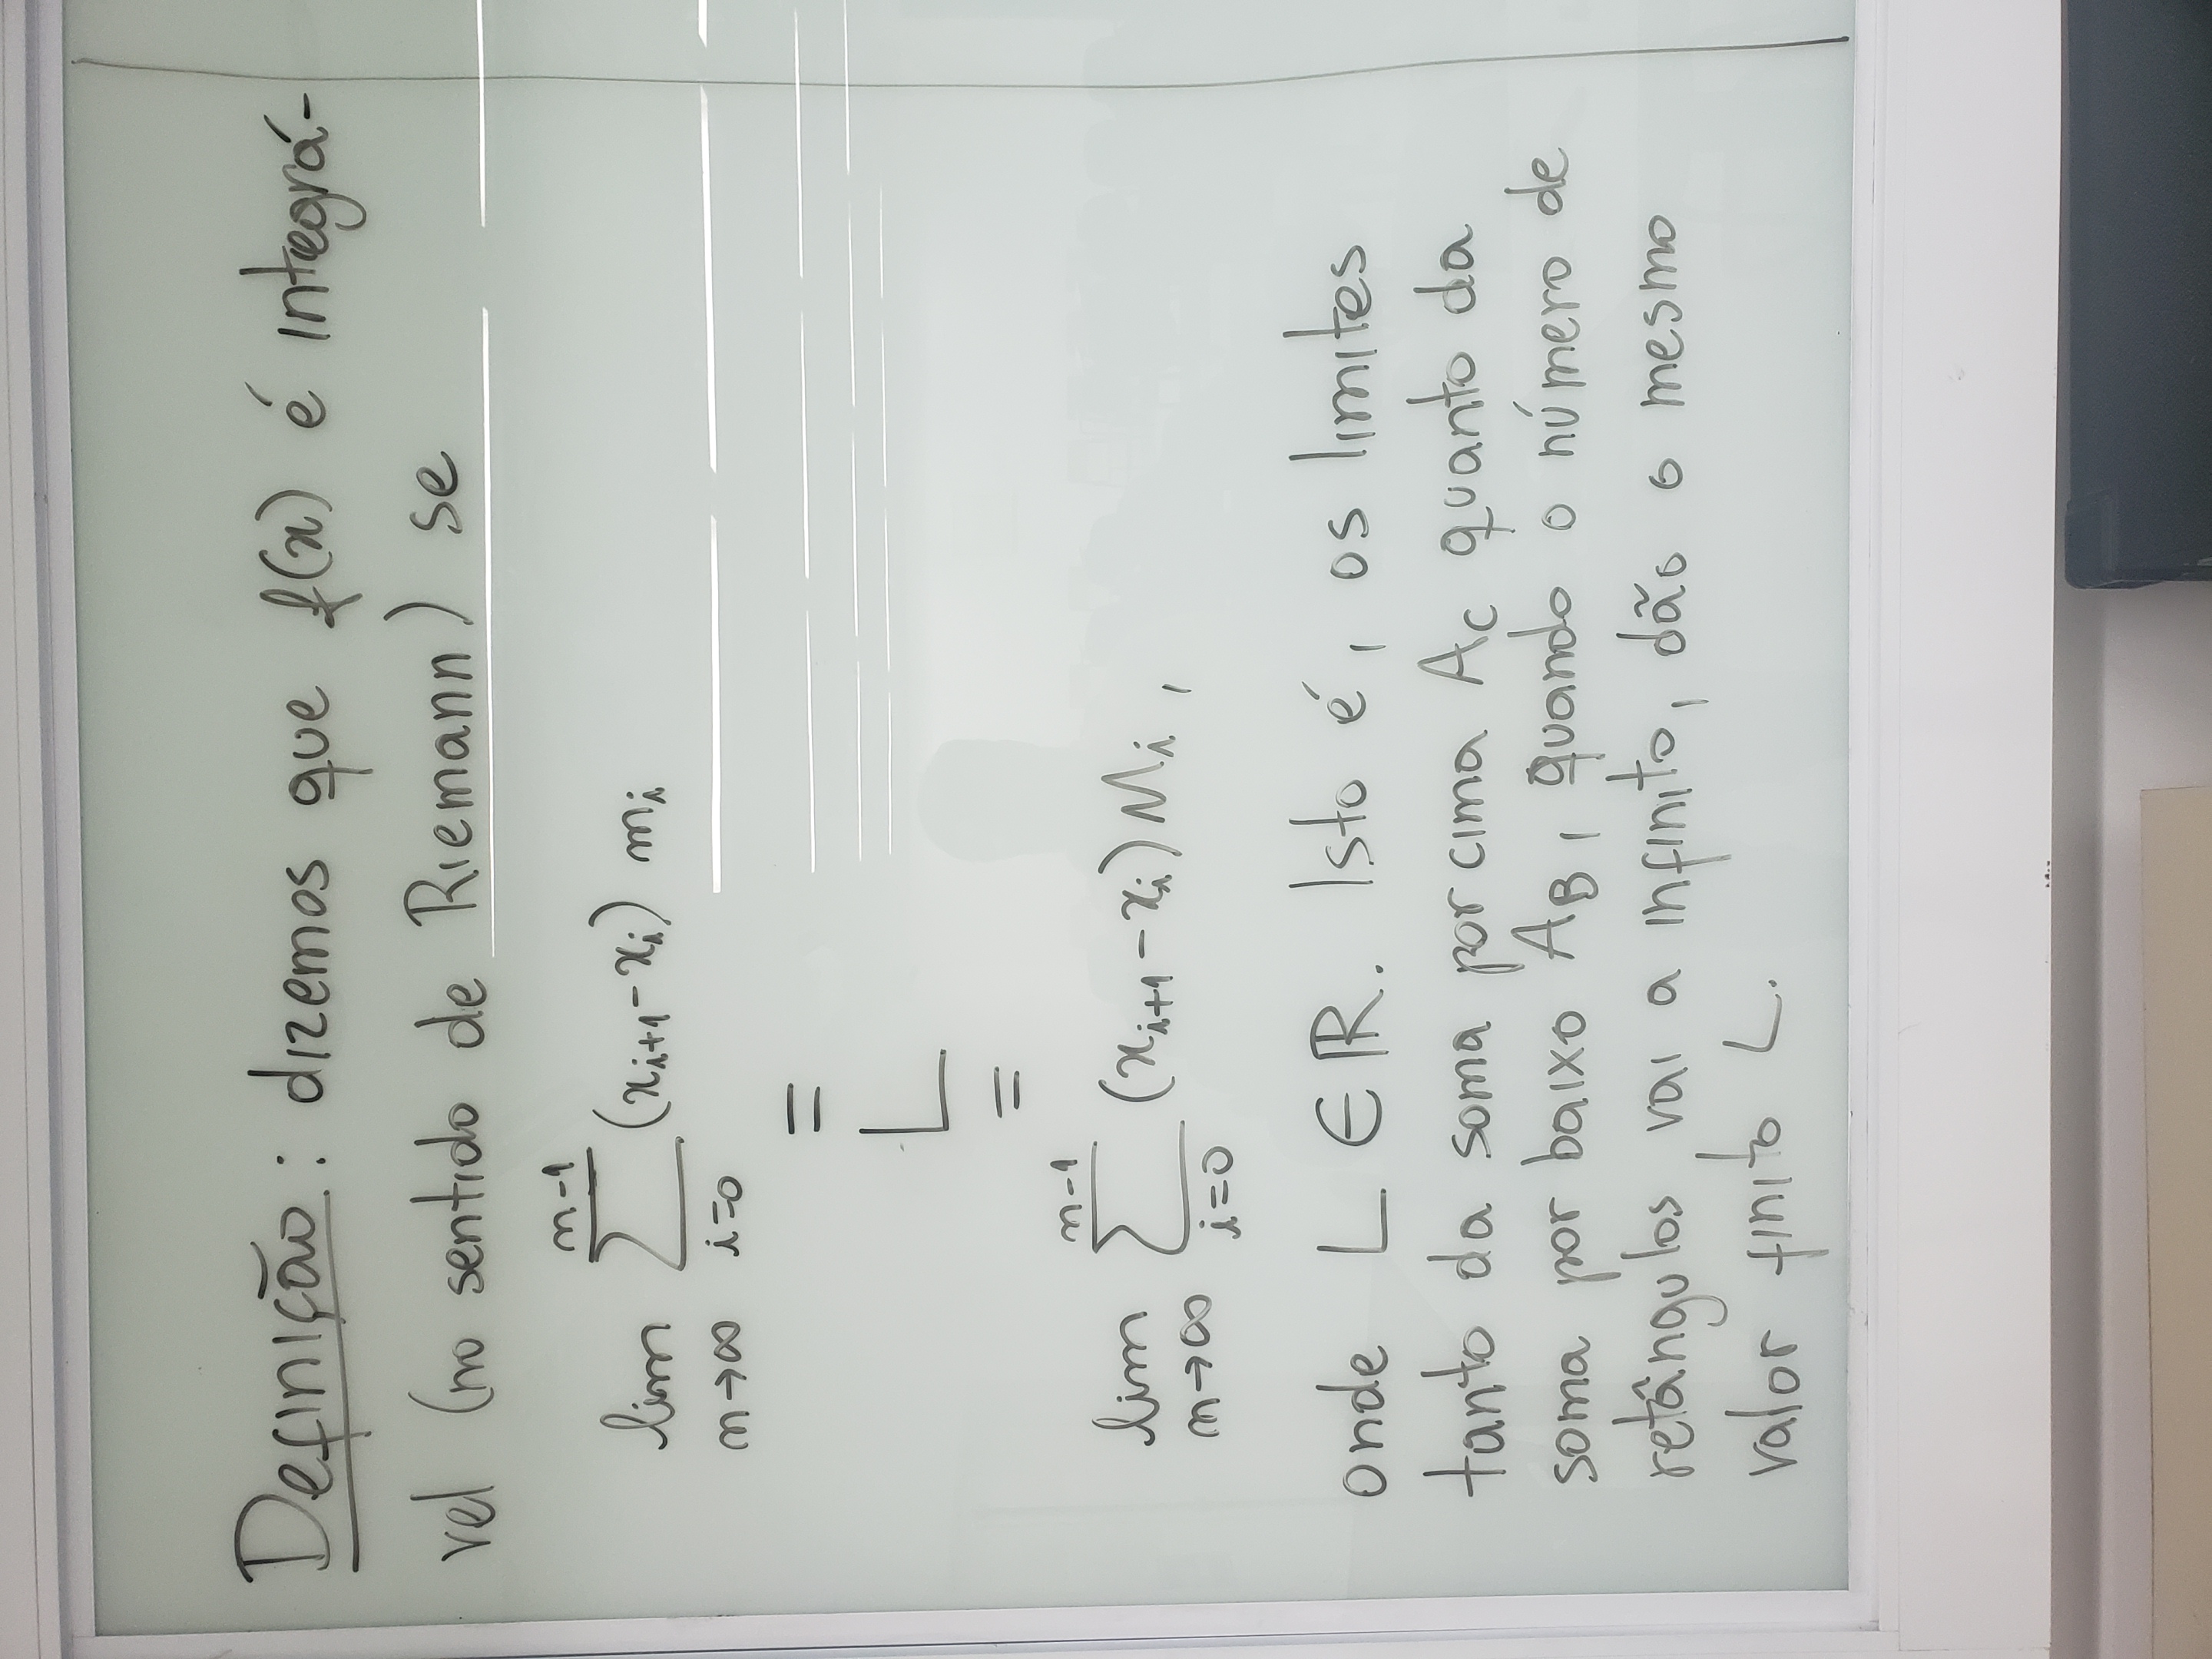 Definição: dizemos que f(x) é integrá-
vel (no sentido de Riemann) se
lim_{n→∞} ∑_{i=0}^{n-1} (x_{i+1} - x_i) m_i
=
L
=
lim_{n→∞} ∑_{i=0}^{n-1} (x_{i+1} - x_i) M_i ,
onde L ∈ ℝ. Isto é, os limites
tanto da soma por cima A_C quanto da
soma por baixo A_B, quando o número de
retângulos vai a infinito, dão o mesmo
valor finito L.